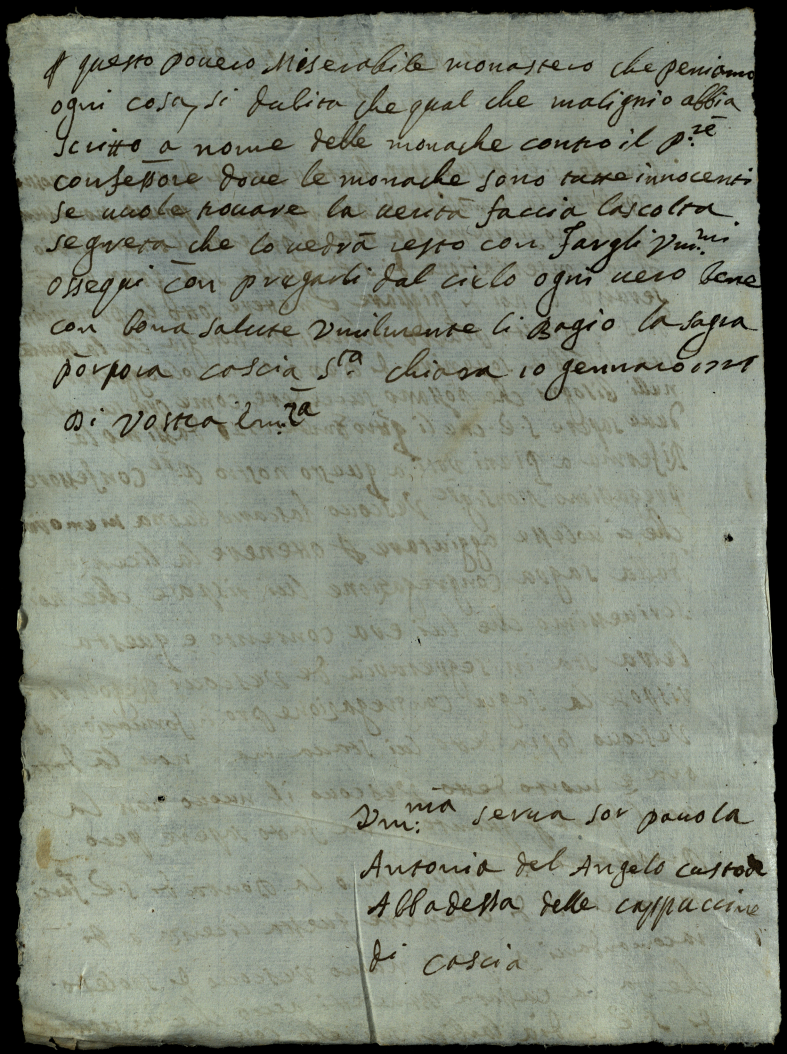 questo povero Miserabile monastero che peniamo
ogni cosa, si dubita che qual che malignio abbia
scritto a nome delle monache contro il p:re
confessore dove le monache sono tutte innocenti
se vuole trovare la verità faccia lascolta
segreta che lo vedrà resto con fargli Vm:mi
ossequi con pregarli dal cielo ogni vero bene
con bona salute Vmilmente li Bagio la sagra
porpora cascia S:ta chiara 10 gennaro
Di Vostra Em:za
Vm:ma serva sor pauola
Antonia del Angelo custode
Abbadessa delle cappuccine
di cascia